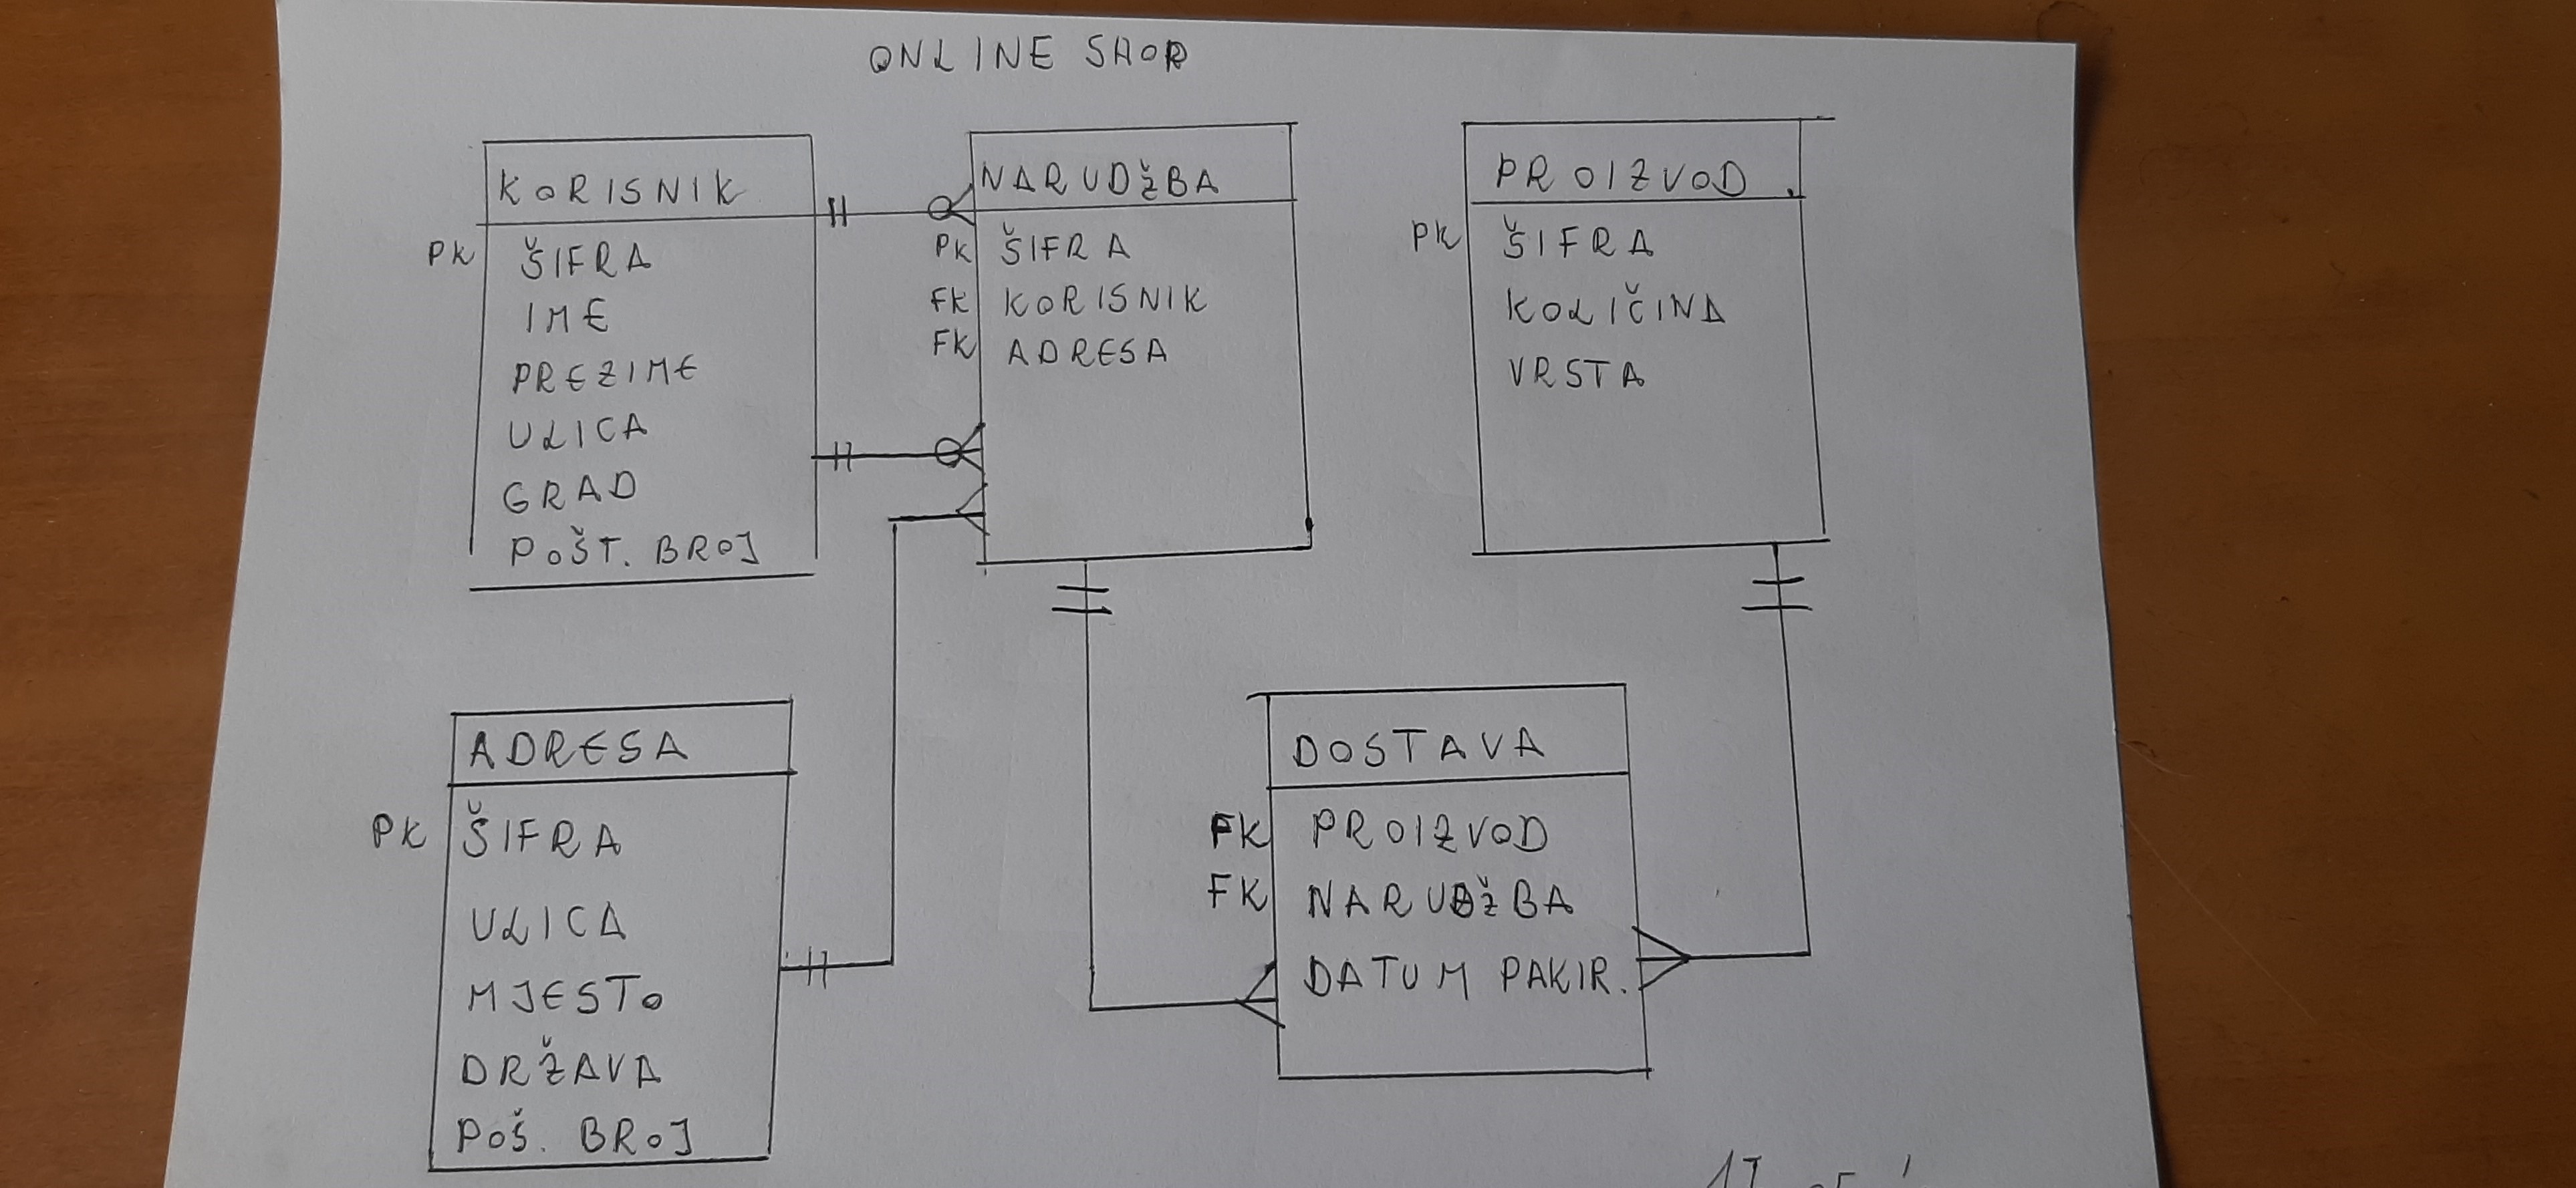 ONLINE SHOP
KORISNIK
PK ŠIFRA
IME
PREZIME
ULICA
GRAD
POŠT. BROJ
NARUDŽBA
PK ŠIFRA
FK KORISNIK
FK ADRESA
PROIZVOD
PK ŠIFRA
KOLIČINA
VRSTA
ADRESA
PK ŠIFRA
ULICA
MJESTO
DRŽAVA
POŠ. BROJ
DOSTAVA
FK PROIZVOD
FK NARUDŽBA
DATUM PAKIR.